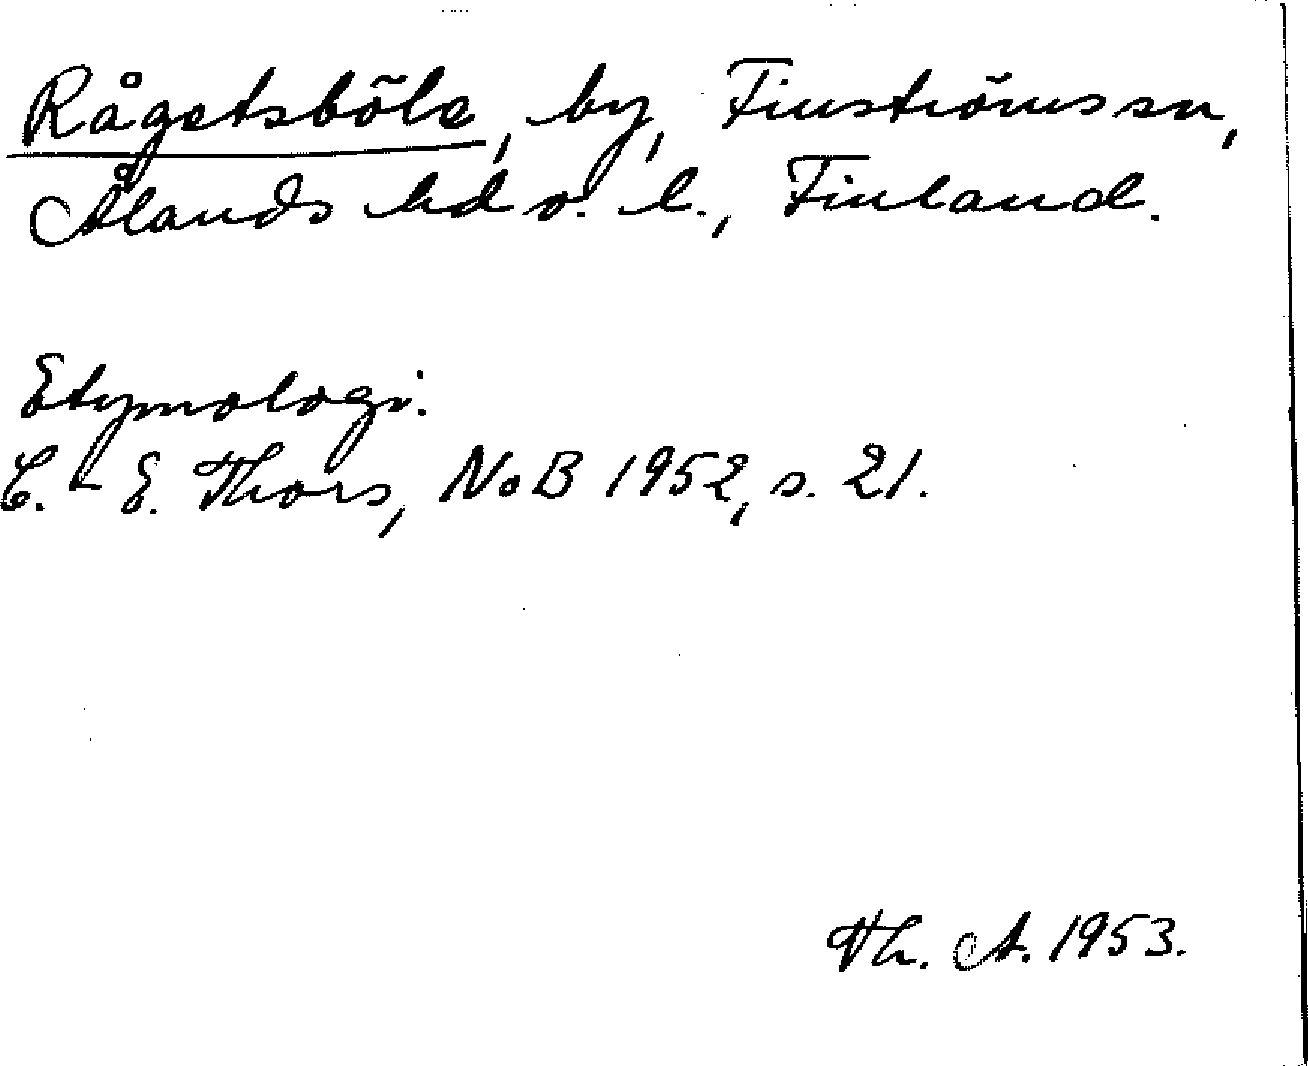 Rågetsböle, by, Finströms sn,
Ålands hd o. l., Finland.
Etymologi:
C.-E. Thors, NoB 1952, s. 21.
Th. A. 1953.